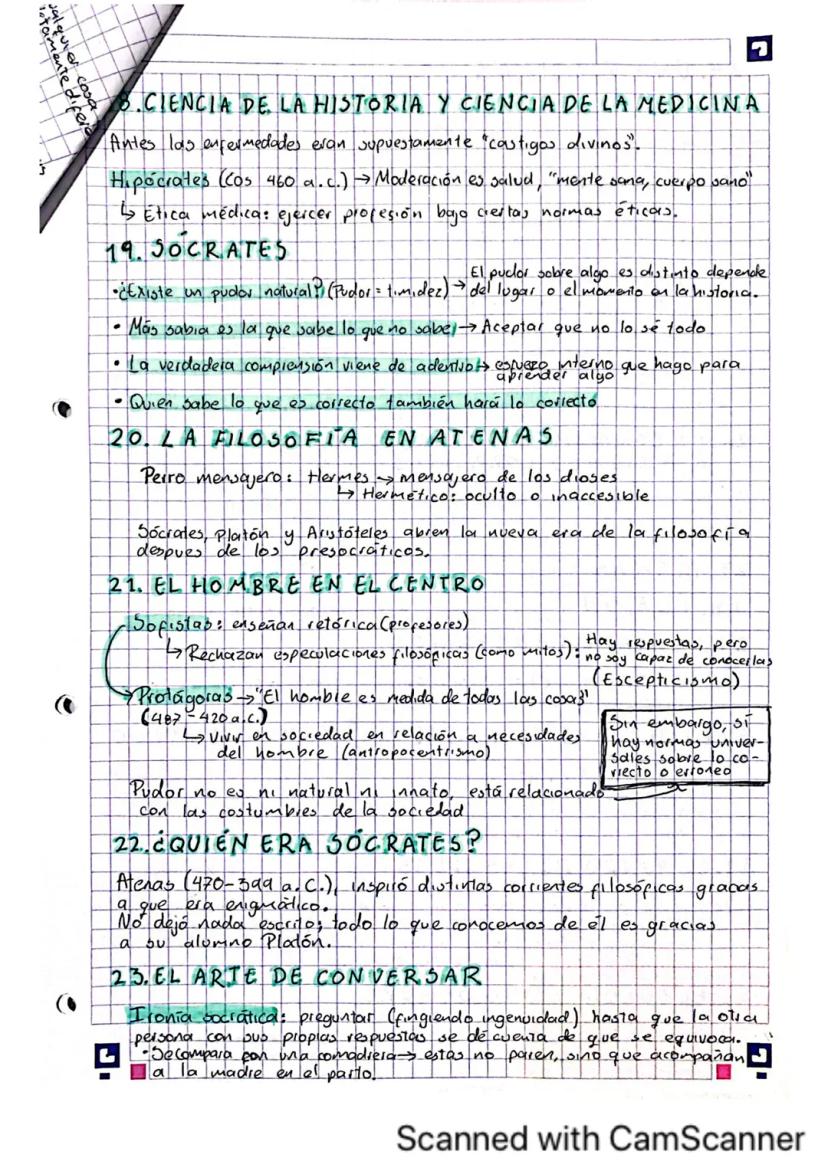 alquier cosa
tamente difere
8. CIENCIA DE LA HISTORIA Y CIENCIA DE LA MEDICINA
Antes las enfermedades eran supuestamente "castigos divinos".
Hipócrates (Cos 460 a.c.) → Moderación es salud, "mente sana, cuerpo sano"
↳ Ética médica: ejercer profesión bajo ciertas normas éticas.
19. SÓCRATES
• ¿Existe un pudor natural? (Pudor = timidez) → El pudor sobre algo es distinto depende
del lugar o el momento en la historia.
• Más sabia es la que sabe lo que no sabe → Aceptar que no lo sé todo
• La verdadera comprensión viene de adentro → esfuerzo interno que hago para
aprender algo
• Quien sabe lo que es correcto también hará lo correcto
20. LA FILOSOFÍA EN ATENAS
Perro mensajero: Hermes → mensajero de los dioses
↳ Hermético: oculto o inaccesible
Sócrates, Platón y Aristóteles abren la nueva era de la filosofía
despues de los presocráticos.
21. EL HOMBRE EN EL CENTRO
Sofistas: enseñan retórica (profesores)
↳ Rechazan especulaciones filosópicas (como mitos): Hay respuestas, pero
no soy capaz de conocerlas
(Escepticismo)
Protágoras → "El hombre es medida de todas las cosas"
(487-420 a.c.)
↳ Vivir en sociedad en relación a necesidades
del hombre (antropocentrismo)
Sin embargo, sí
hay normas univer-
sales sobre lo co-
rrecto o erroneo
Pudor no es ni natural ni innato, está relacionado
con las costumbres de la sociedad
22. ¿QUIÉN ERA SÓCRATES?
Atenas (470-399 a.C.), inspiró distintas corrientes filosópicas gracias
a que era enigmático.
No dejó nada escrito; todo lo que conocemos de él es gracias
a su alumno Platón.
23. EL ARTE DE CONVERSAR
Ironía socrática: preguntar (fingiendo ingenuidad) hasta que la otra
persona con sus propias respuestas se dé cuenta de que se equivoca.
• Se compara con una comadrera → estas no paren, sino que acompañan
a la madre en el parto.
Scanned with CamScanner